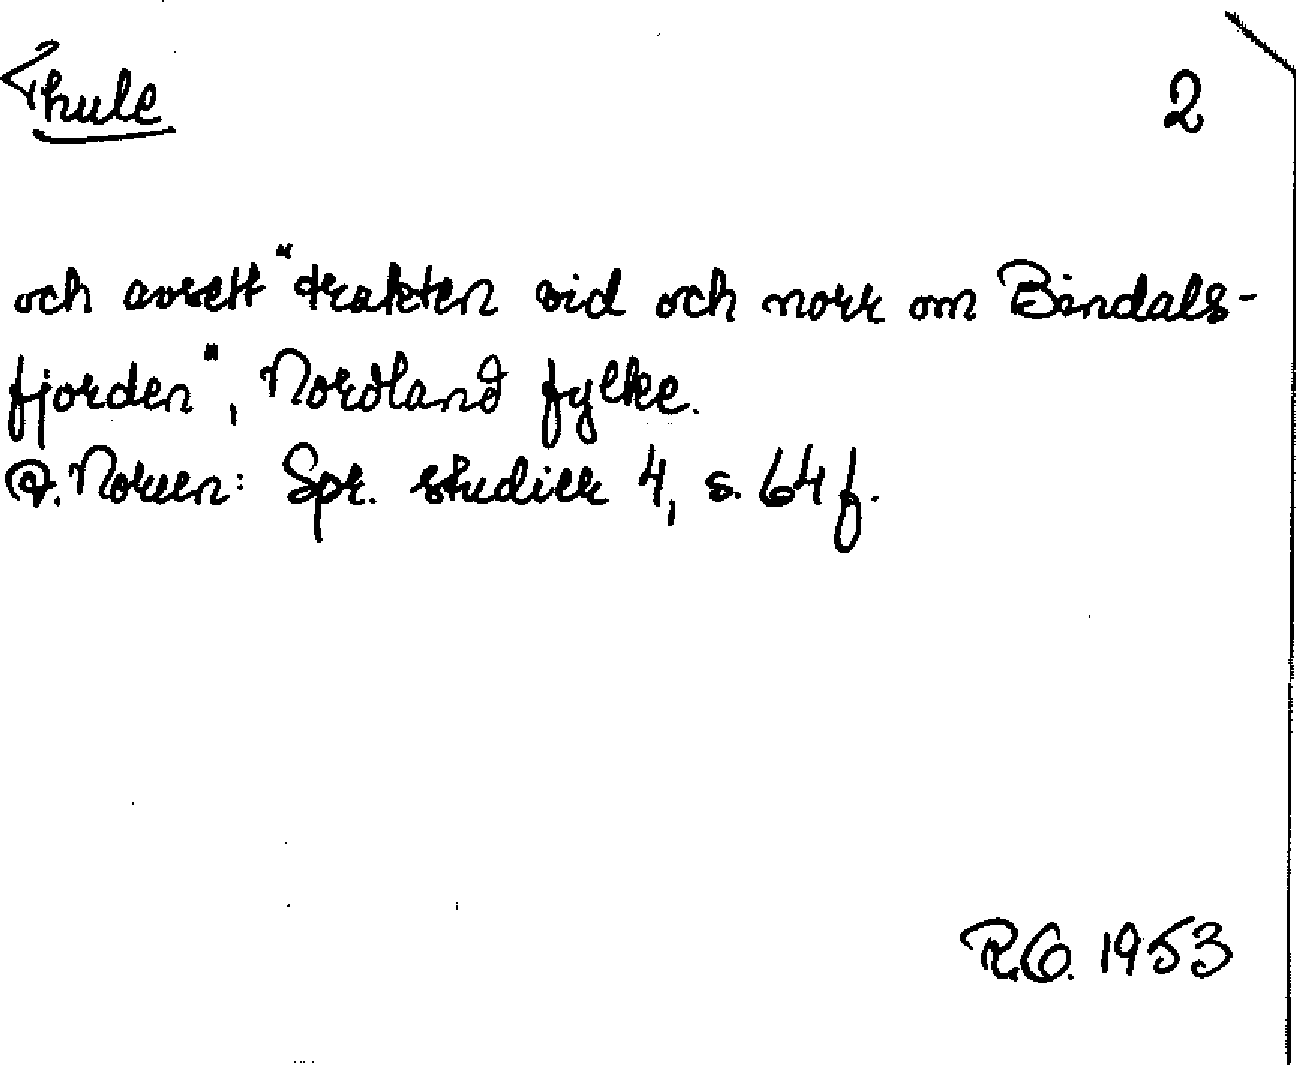 Thule 2
och avsett "trakten vid och norr om Bindals-
fjorden", Nordland fylke.
A. Noreen: Spr. studier 4, s. 64 f.
R.G. 1953